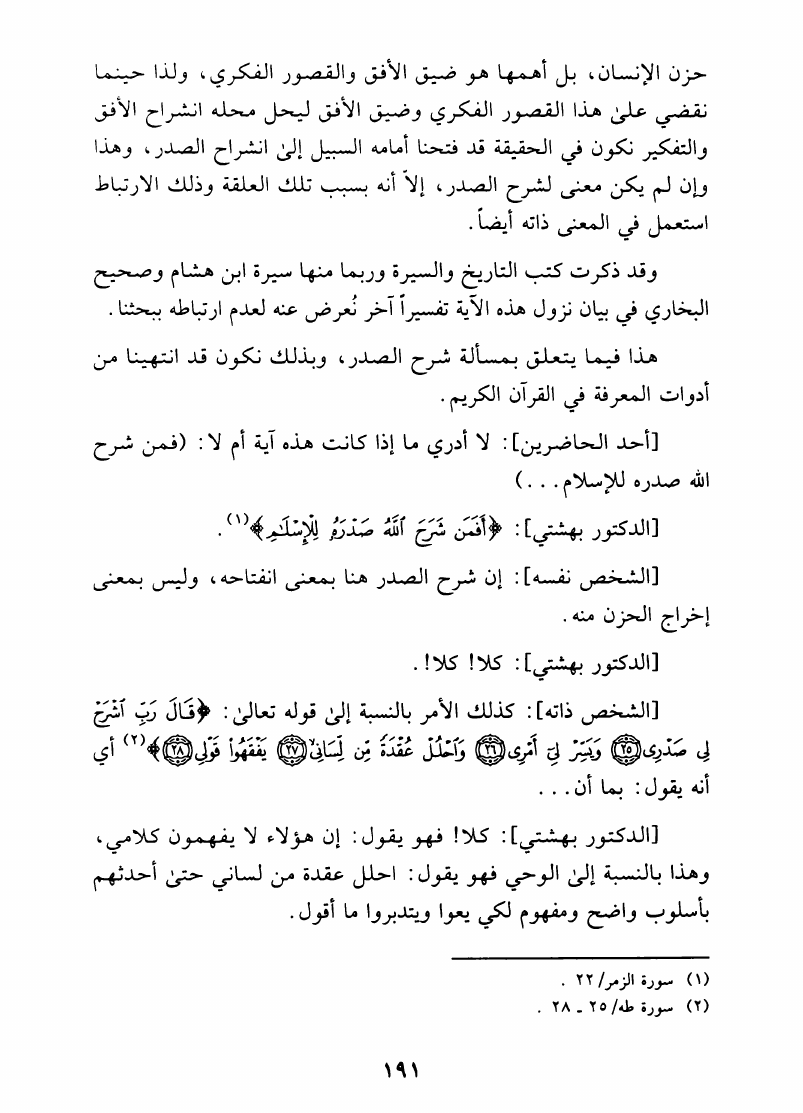 حزن الإنسان، بل أهمها هو ضيق الأفق والقصور الفكري، ولذا حينما
نقضي على هذا القصور الفكري وضيق الأفق ليحل محله انشراح الأفق
والتفكير نكون في الحقيقة قد فتحنا أمامه السبيل إلى انشراح الصدر، وهذا
وإن لم يكن معنى لشرح الصدر، إلاّ أنه بسبب تلك العلقة وذلك الارتباط
استعمل في المعنى ذاته أيضاً.
وقد ذكرت كتب التاريخ والسيرة وربما منها سيرة ابن هشام وصحيح
البخاري في بيان نزول هذه الآية تفسيراً آخر نُعرض عنه لعدم ارتباطه ببحثنا.
هذا فيما يتعلق بمسألة شرح الصدر، وبذلك نكون قد انتهينا من
أدوات المعرفة في القرآن الكريم.
[أحد الحاضرين]: لا أدري ما إذا كانت هذه آية أم لا: (فمن شرح
الله صدره للإسلام...)
[الدكتور بهشتي]: ﴿أَفَمَن شَرَحَ ٱللَّهُ صَدْرَهُۥ لِلْإِسْلَٰمِ﴾(١).
[الشخص نفسه]: إن شرح الصدر هنا بمعنى انفتاحه، وليس بمعنى
إخراج الحزن منه.
[الدكتور بهشتي]: كلا! كلا!.
[الشخص ذاته]: كذلك الأمر بالنسبة إلى قوله تعالى: ﴿قَالَ رَبِّ ٱشْرَحْ
لِي صَدْرِي ﴿٢٥﴾ وَيَسِّرْ لِيٓ أَمْرِي ﴿٢٦﴾ وَٱحْلُلْ عُقْدَةً مِّن لِّسَانِي ﴿٢٧﴾ يَفْقَهُوا۟ قَوْلِي ﴿٢٨﴾﴾(٢) أي
أنه يقول: بما أن...
[الدكتور بهشتي]: كلا! فهو يقول: إن هؤلاء لا يفهمون كلامي،
وهذا بالنسبة إلى الوحي فهو يقول: احلل عقدة من لساني حتى أحدثهم
بأسلوب واضح ومفهوم لكي يعوا ويتدبروا ما أقول.
(١) سورة الزمر/٢٢.
(٢) سورة طه/٢٥ - ٢٨.
١٩١